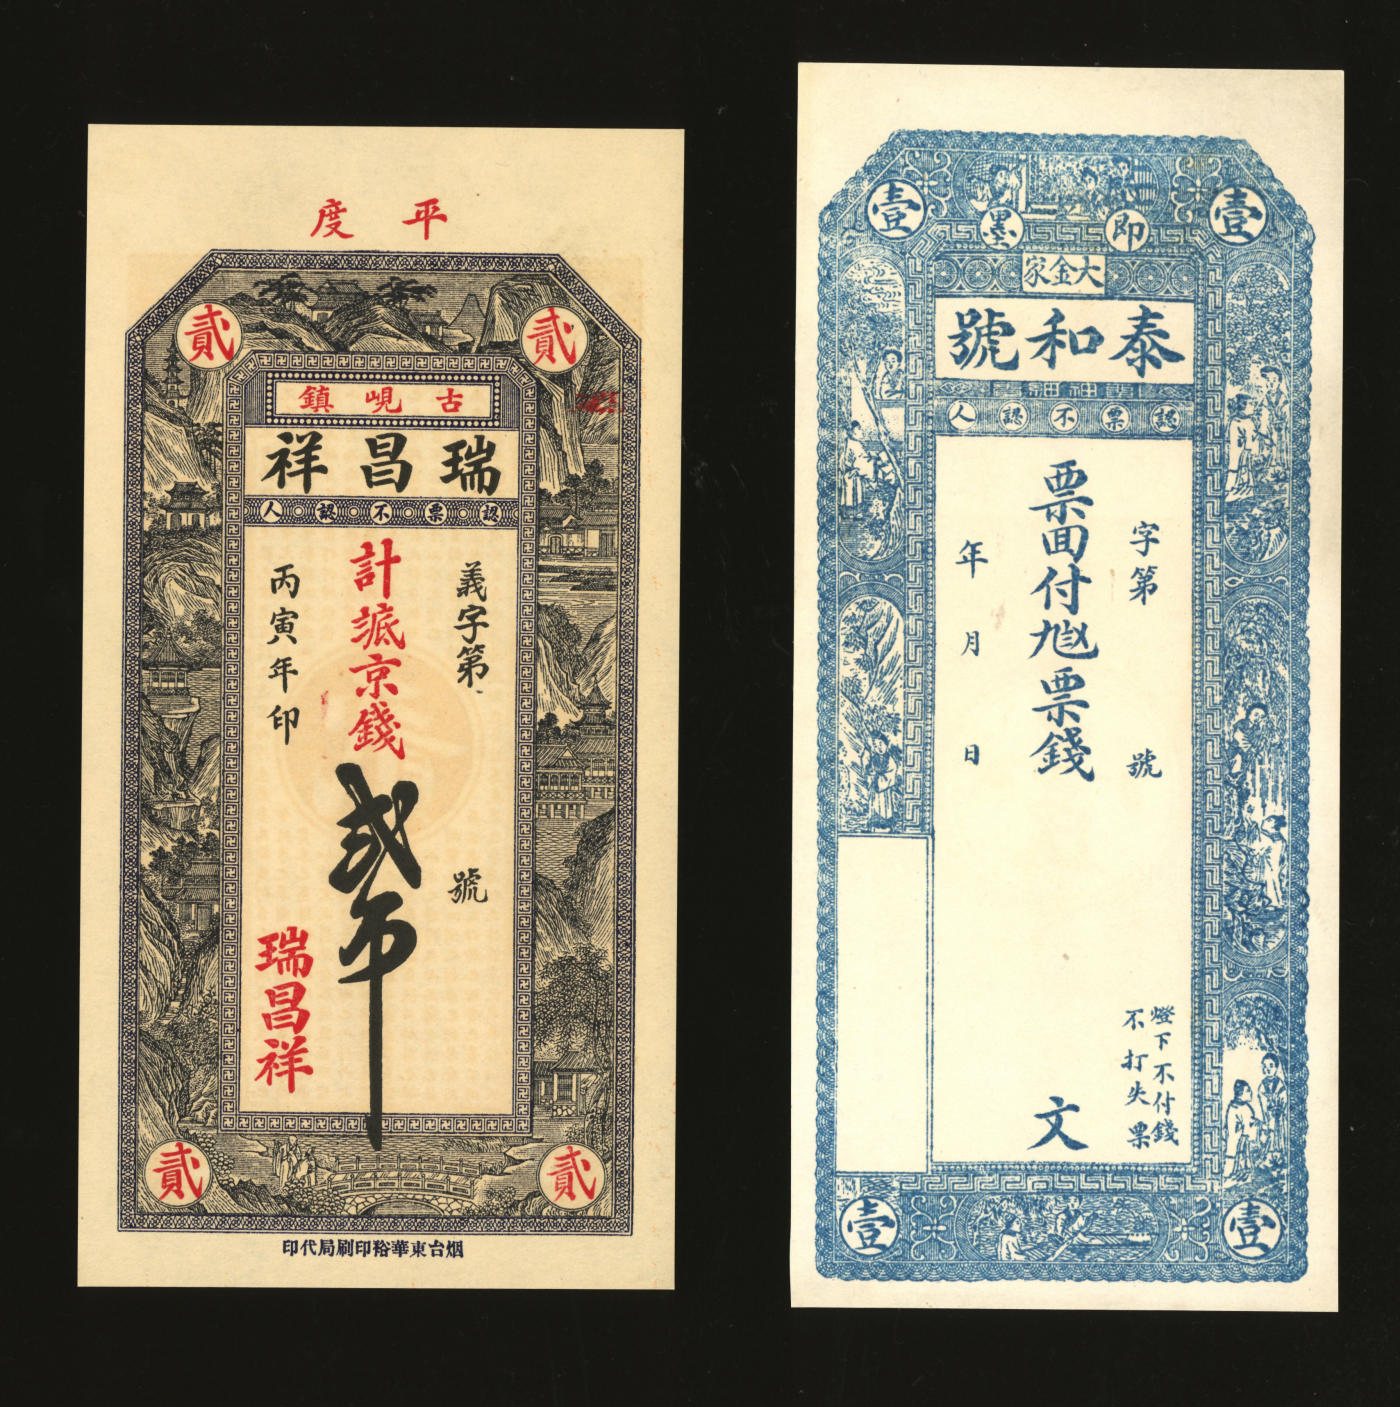 平度
貳 貳
古峴鎮
瑞昌祥
認票不認人
義字第 號
計 京錢
貳吊
丙寅年印
瑞昌祥
貳 貳
烟台東華裕印刷局代印
壹 壹
即墨
大金家
泰和號
認票不認人
字第 號
票面付 票錢 文
年 月 日
燈下不付錢
不打失票
壹 壹